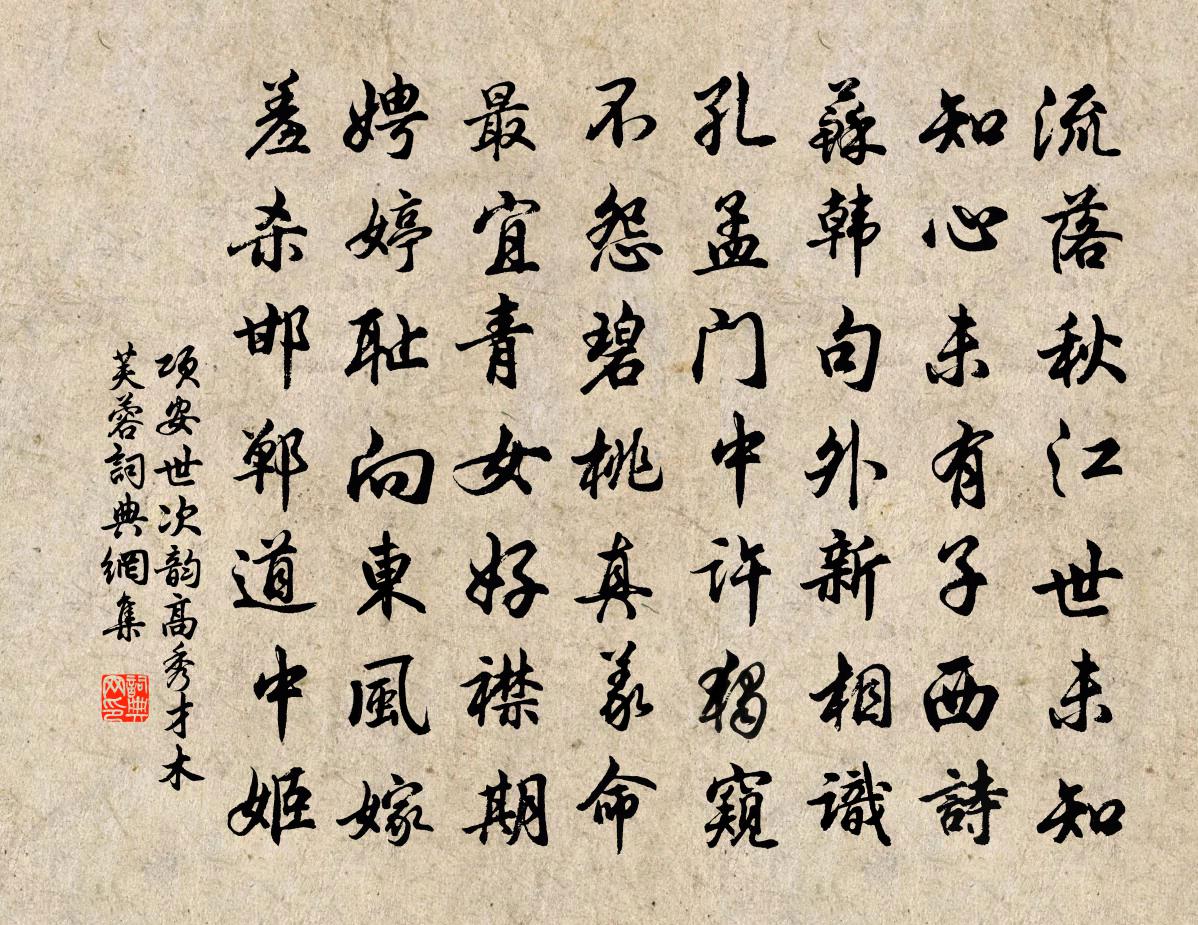 流落秋江世未知
知心未有子西詩
蘇韩句外新相識
孔孟门中许独窺
不怨碧桃真義命
最宜青女好襟期
娉婷耻向東風嫁
羞杀邯郸道中姬
项安世次韵高秀才木
芙蓉詞典網集
詞典
网印